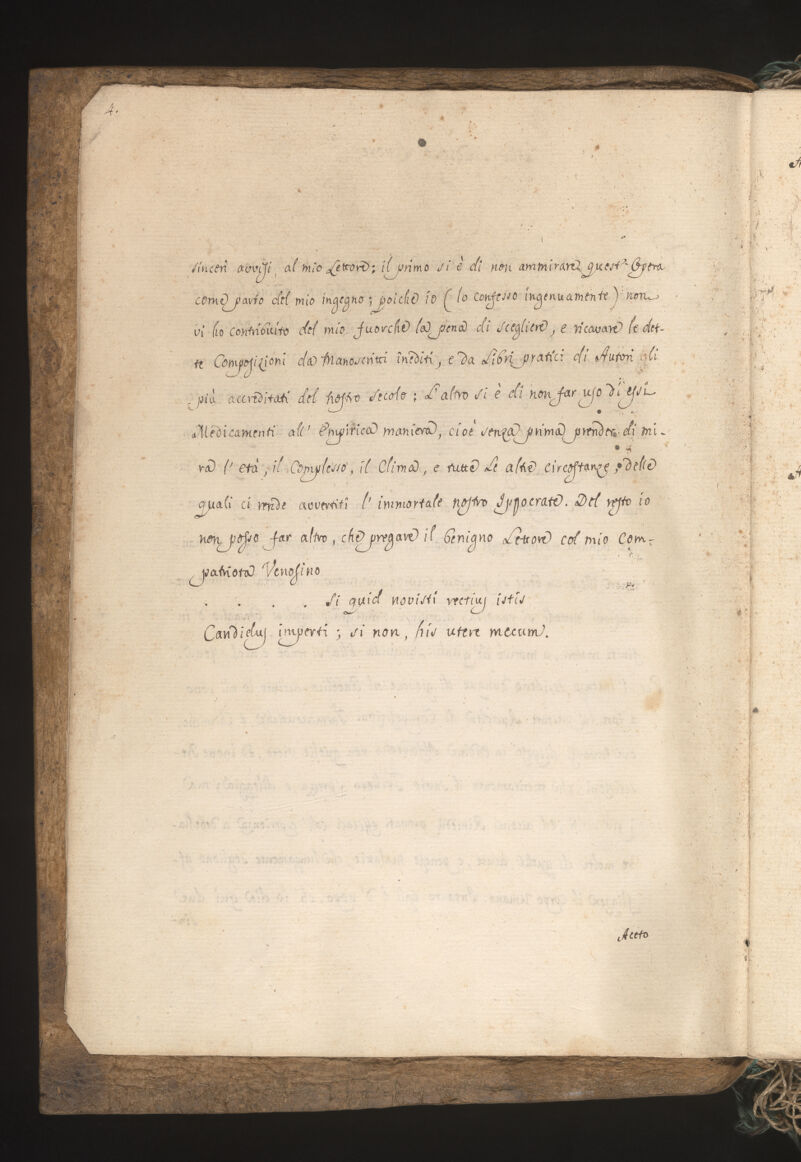 4.
sinceri avvisi, al mio Lettore; il primo si è di non ammirare quest' Opera
come parto del mio ingegno; poiche io (lo confesso ingenuamente) non
vi ho contribuito del mio fuorche la pena di scegliere, e ricavare le det-
te Composizioni da Manoscritti inediti, e da Libri pratici di Autori gli
più accreditati del nostro Secolo; L'altro si è di non far uso di essi
Medicamenti all' Empirica maniera, cioè senza prima prender di mi-
ra l' età, il Complesso, il Clima, e tutte le altre circostanze, delle
quali ci rende avvertiti l' immortale nostro Ippocrate. Del resto io
non posso far altro, che pregare il benigno Lettore col mio Com-
patriota Venosino
. . . . Si quid novisti rectius istis
Candidus imperti; si non, his utere mecum.
Aceto